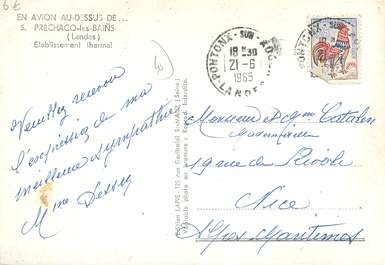 6€
EN AVION AU-DESSUS DE...
5. PRECHACQ-les-BAINS
(Landes)
Etablissement thermal
PONTONX-SUR-ADOUR
18H30
21-6
1965
LANDES
Veuillez recevoir
l'expression de ma
meilleure sympathie
Mme
Edition LAPIE - 125 rue Garibaldi St-MAUR (Seine)
Véritable photo au bromure - Reprod. Interdite.
Monsieur et Mme
Mademoiselle
19 rue de Rivoli
Nice
Alpes Maritimes